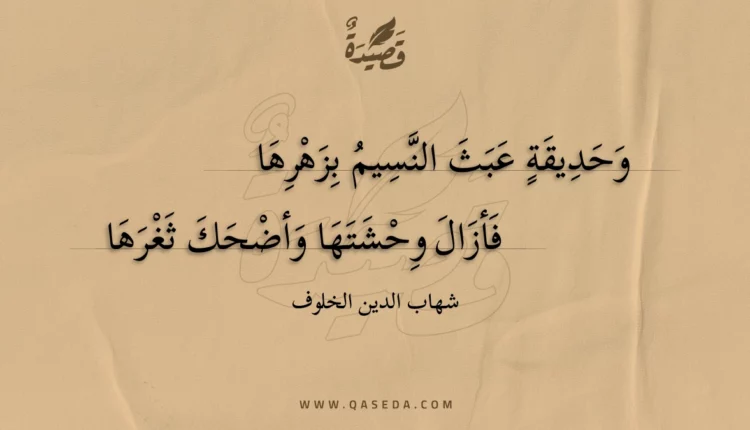 قَصِيدَةٌ
وَحَدِيقَةٍ عَبَثَ النَّسِيمُ بِزَهْرِهَا
فَأزَالَ وِحْشَتَهَا وَأضْحَكَ ثَغْرَهَا
شهاب الدين الخلوف
WWW.QASEDA.COM